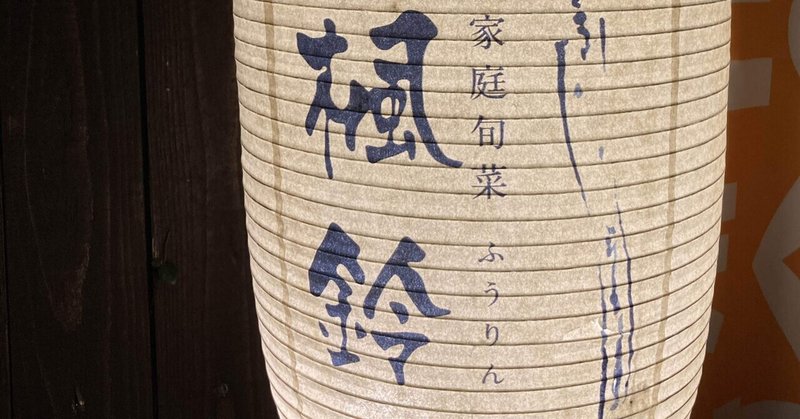 家庭旬菜 ふうりん
楓鈴